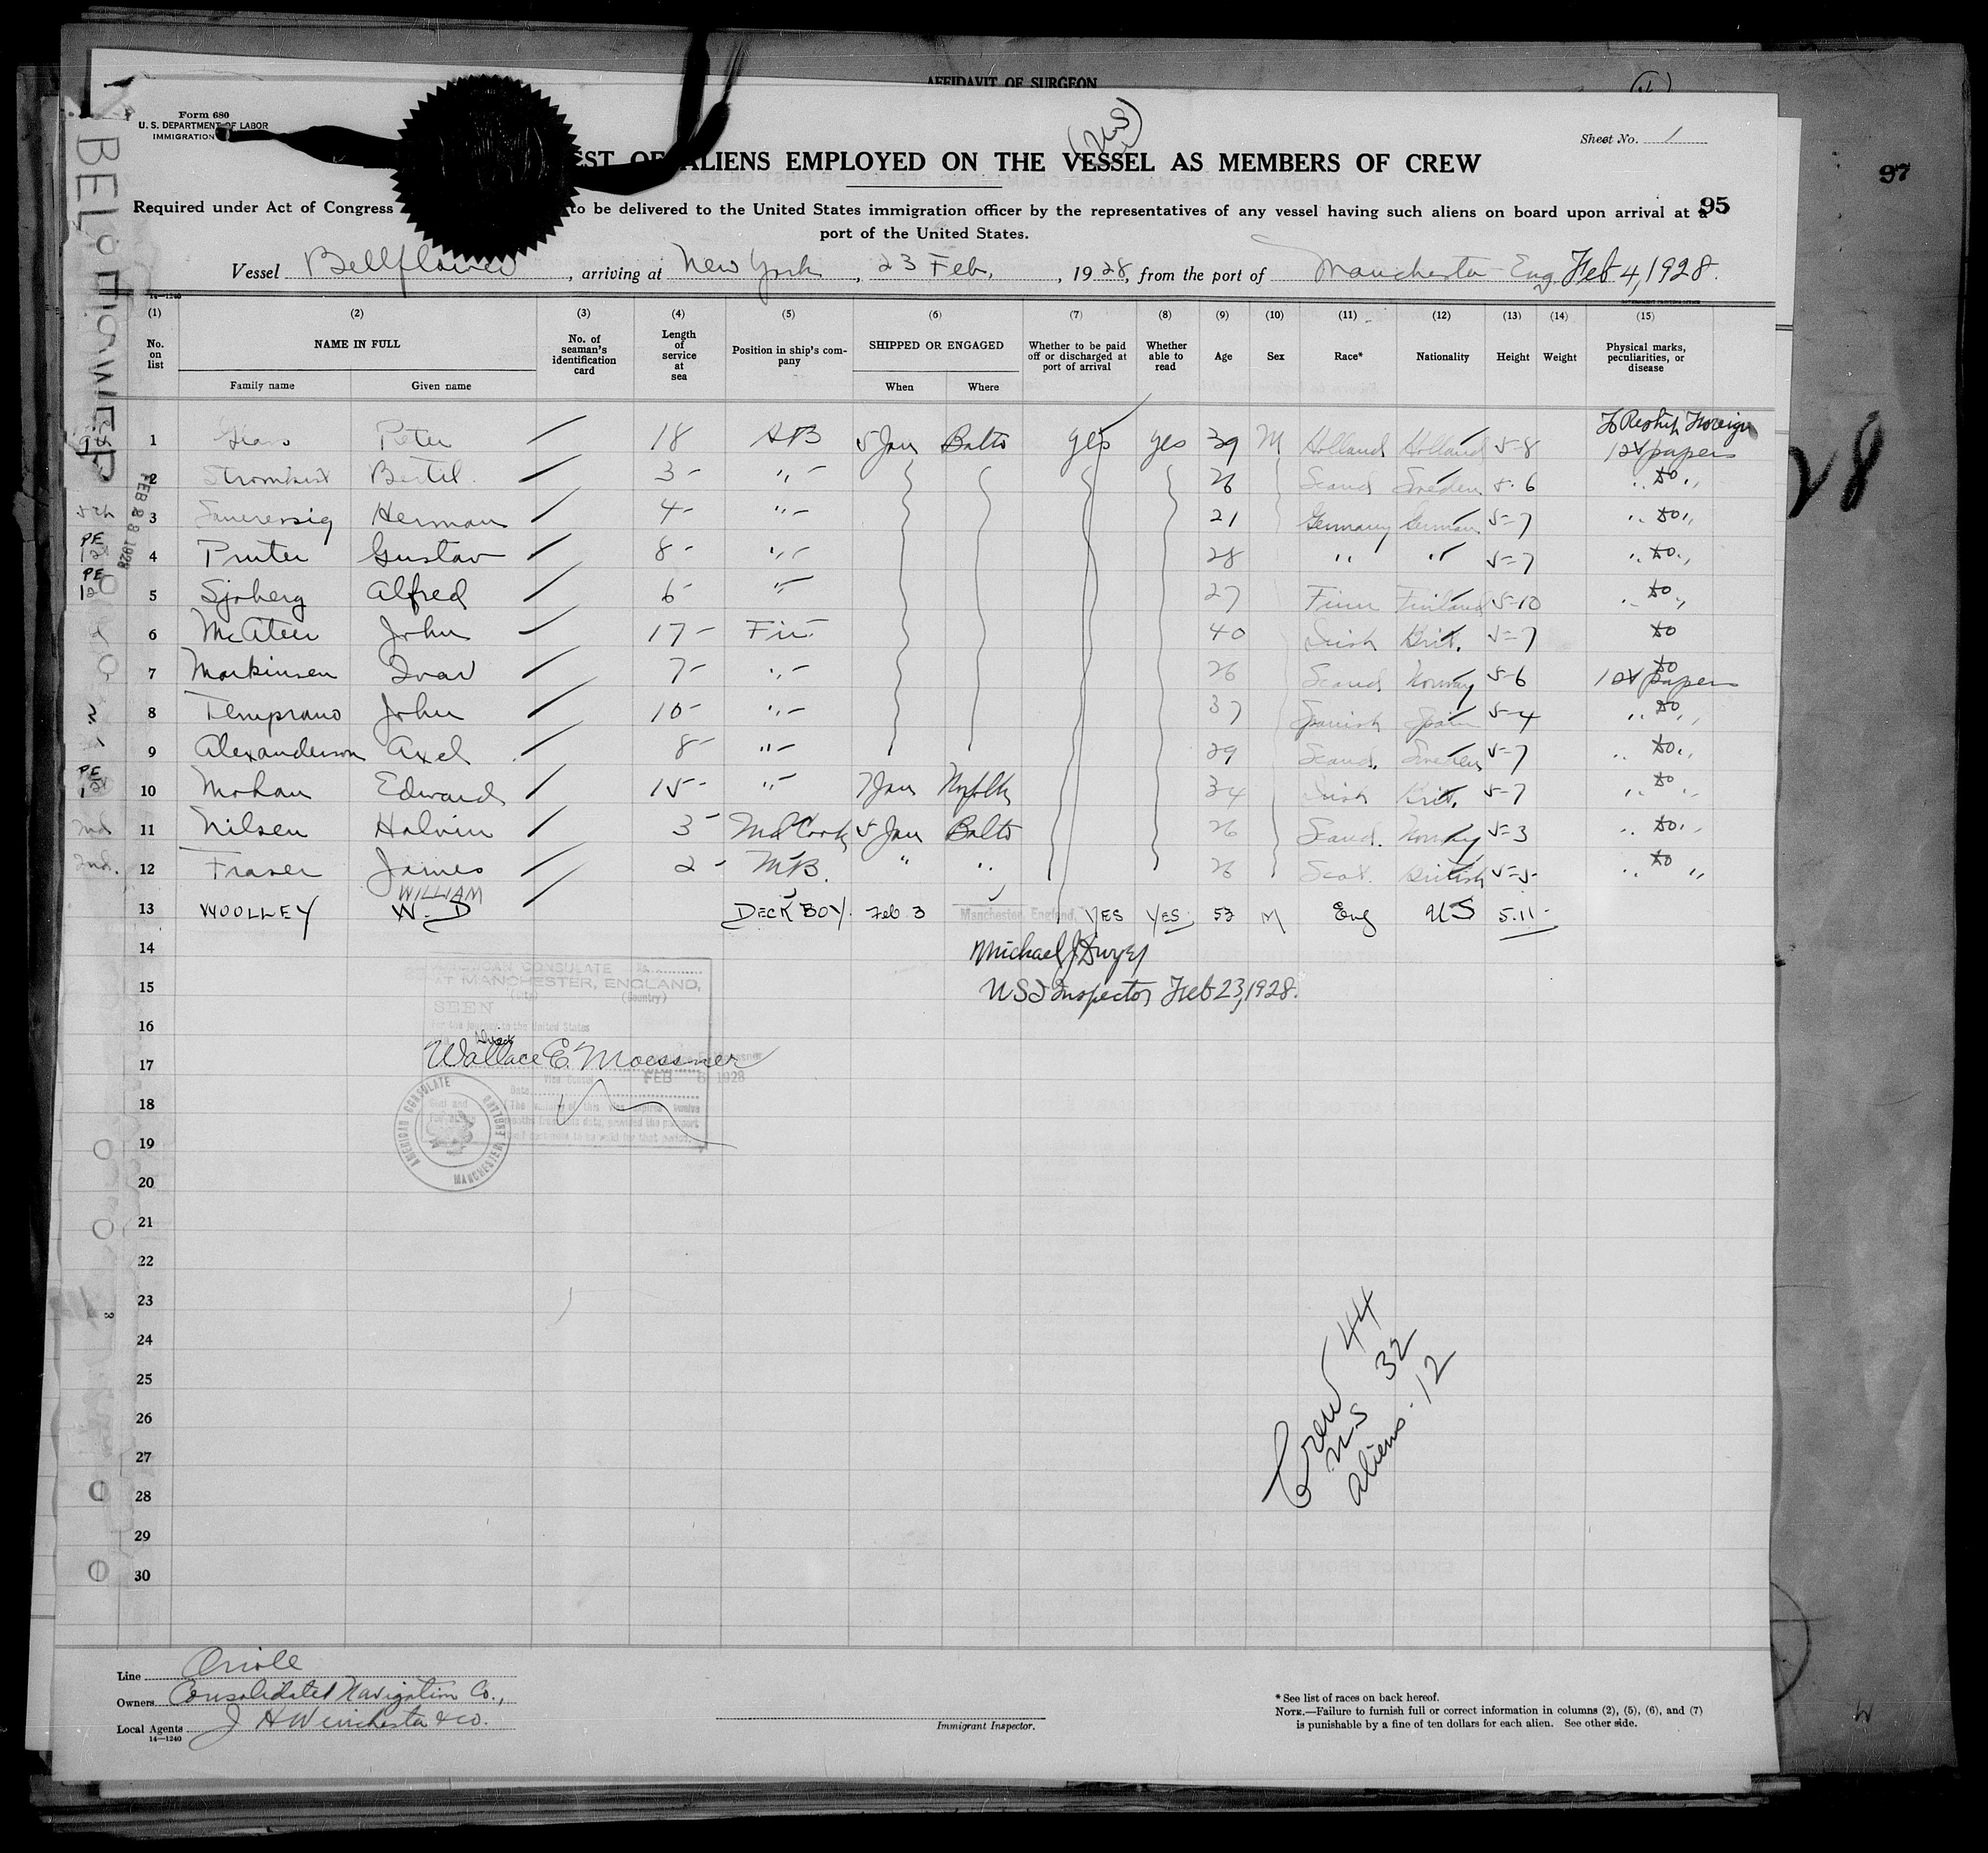 AFFIDAVIT OF SURGEON
Form 680
U. S. DEPARTMENT OF LABOR
IMMIGRATION
Sheet No. 1
97
(US)
OF ALIENS EMPLOYED ON THE VESSEL AS MEMBERS OF CREW
95
Required under Act of Congress to be delivered to the United States immigration officer by the representatives of any vessel having such aliens on board upon arrival at a
port of the United States.
Vessel Bellflower, arriving at New York, 23 Feb., 1928, from the port of Manchester Eng Feb 4, 1928.
14—1240
(1) (2) (3) (4) (5) (6) (7) (8) (9) (10) (11) (12) (13) (14) (15)
No. on list NAME IN FULL No. of seaman's identification card Length of service at sea Position in ship's company SHIPPED OR ENGAGED Whether to be paid off or discharged at port of arrival Whether able to read Age Sex Race* Nationality Height Weight Physical marks, peculiarities, or disease
Family name Given name When Where
To Reship Foreign
1 Peter 18 AB 5 Jan Balto yes yes 39 M Holland Holland 5-8 1st papers
2 Bertil 3- ,,- 26 Scand Sweden 5-6 ,, do ,,
3 Herman 4- ,,- 21 Germany German 5-7 ,, do ,,
4 Pruter Gustav 8- ,,- 28 ,, ,, 5-7 ,, do ,,
5 Sjoberg Alfred 6- ,,- 27 Finn Finland 5-10 ,, do ,,
6 McAteer John 17- Fir- 40 Irish Brit. 5-7 do
7 Markinsen Ivar 7- ,,- 26 Scand Norway 5-6 do 1st papers
8 Temprano John 10- ,,- 37 Spanish Spain 5-4 ,, do ,,
9 Alexanderson Axel 8- ,,- 29 Scand. Sweden 5-7 ,, do ,,
10 Mohan Edward 15- ,,- 34 Irish Brit. 5-7 ,, do ,,
2nd 11 Nilsen Halvin 3- Cook 5 Jan Balto 26 Scand. Norway 5-3 ,, do ,,
2nd. 12 Fraser James 2- MB. " ,, 26 Scot. British 5-5- ,, do ,,
WILLIAM
13 WOOLLEY W. D DECK BOY. Feb 3 Manchester, England, YES YES 53 M Eng US 5.11-
14 Michael J Dwyer
15 US Inspector Feb 23, 1928.
AMERICAN CONSULATE
AT MANCHESTER, ENGLAND,
(City) (Country)
SEEN
For the journey to the United States
16
17 Wallace E. Moessner
Vice Consul
Date FEB 6 1928
AMERICAN CONSULATE
MANCHESTER, ENGLAND
18
19
20
21
22
23
24
25
26
27
28
29
30
Crew 44
US 32
aliens - 12
BELLFLOWER
FEB 23 1928
28
Line Oriole
Owners Consolidated Navigation Co.,
Local Agents J H Winchester & Co.
14—1240
Immigrant Inspector.
* See list of races on back hereof.
NOTE.—Failure to furnish full or correct information in columns (2), (5), (6), and (7)
is punishable by a fine of ten dollars for each alien. See other side.